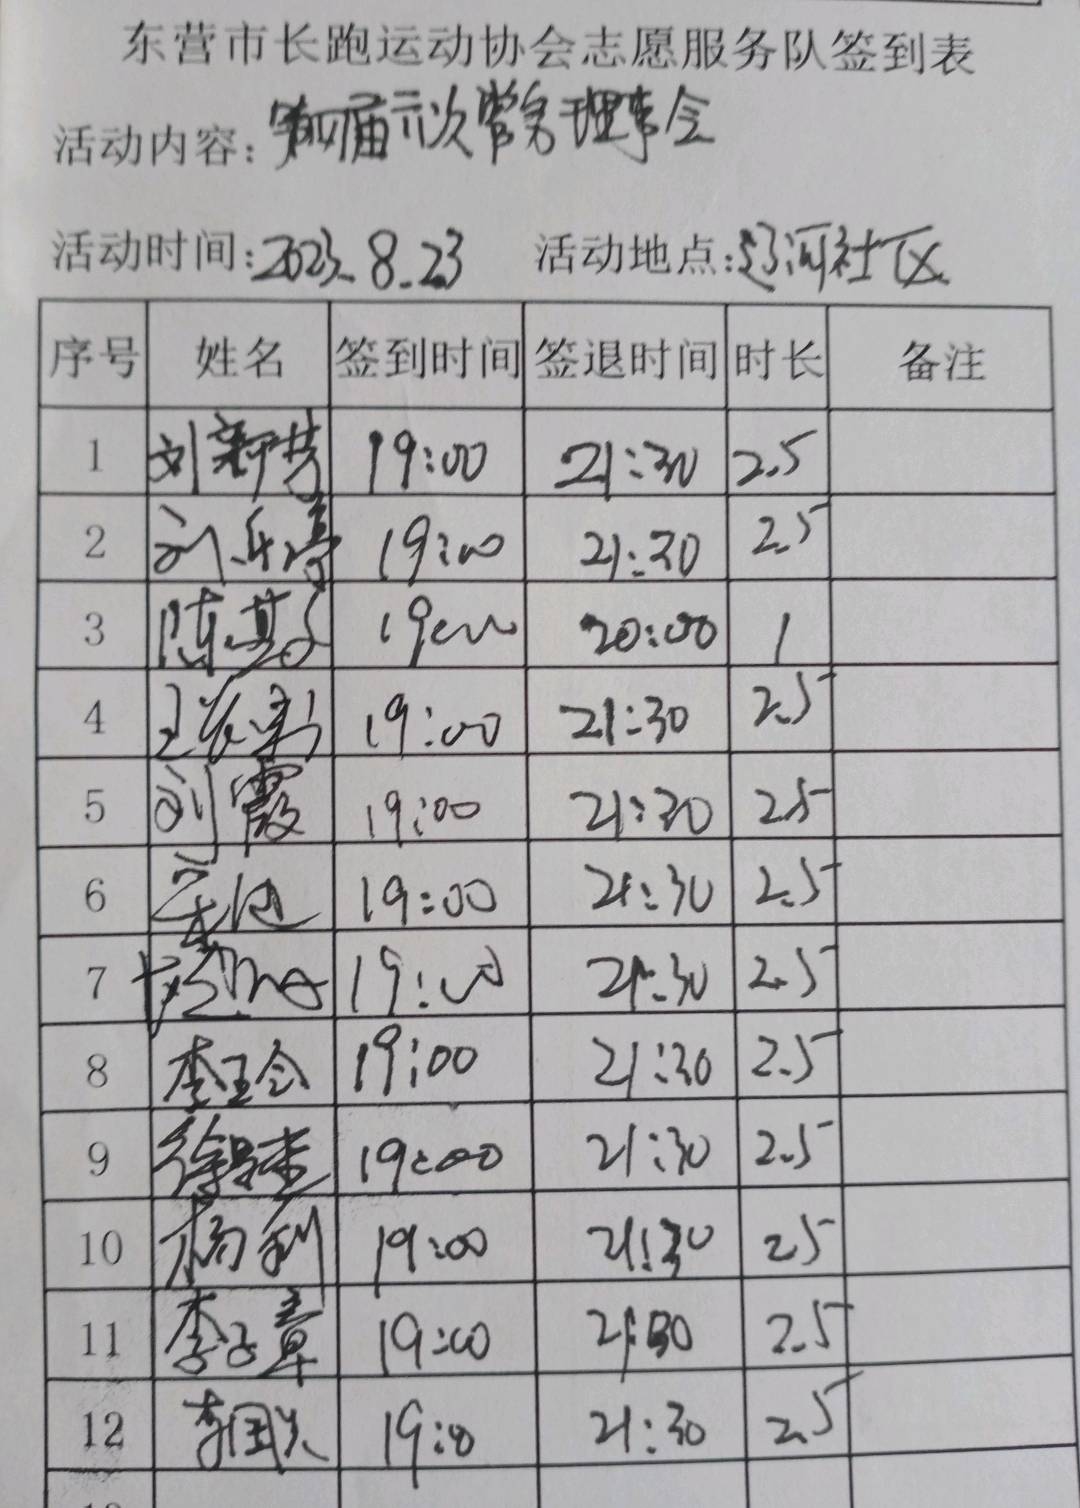 东营市长跑运动协会志愿服务队签到表
活动内容: 第四届六次常务理事会
活动时间: 2023.8.23 活动地点: 辽河社区
序号 姓名 签到时间 签退时间 时长 备注
1 刘新芳 19:00 21:30 2.5
2 刘乐涛 19:00 21:30 2.5
3 陈 19:00 20:00 1
4 王 19:00 21:30 2.5
5 刘霞 19:00 21:30 2.5
6 宋健 19:00 21:30 2.5
7 19:00 21:30 2.5
8 李玉会 19:00 21:30 2.5
9 徐 19:00 21:30 2.5
10 杨利 19:00 21:30 2.5
11 李玉章 19:00 21:30 2.5
12 李国兴 19:0 21:30 2.5